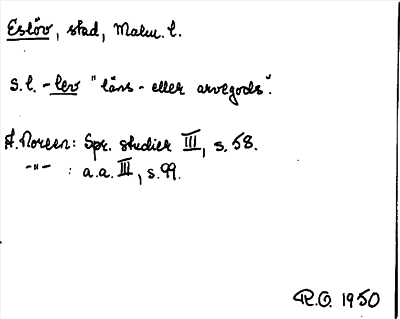 Eslöv, stad, Malm. l.
S. l. - lev "läns- eller arvegods".
A. Noreen: Spr. studier III, s. 58.
-"- : a.a. III, s. 99.
R.O. 1950